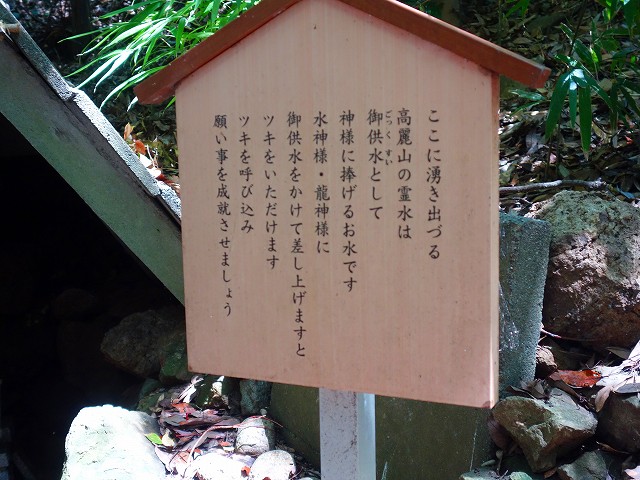 ここに湧き出づる
高麗山の霊水は
御供水として
ごっくすい
神様に捧げるお水です
水神様・龍神様に
御供水をかけて差し上げますと
ツキをいただけます
ツキを呼び込み
願い事を成就させましょう